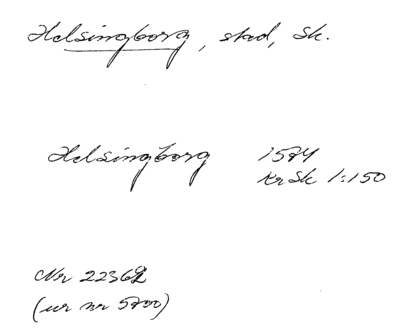 Helsingborg, stad, Sk.
Helsingborg 1584
Kr Sk 1:150
Nr 22362
(ur nr 5700)